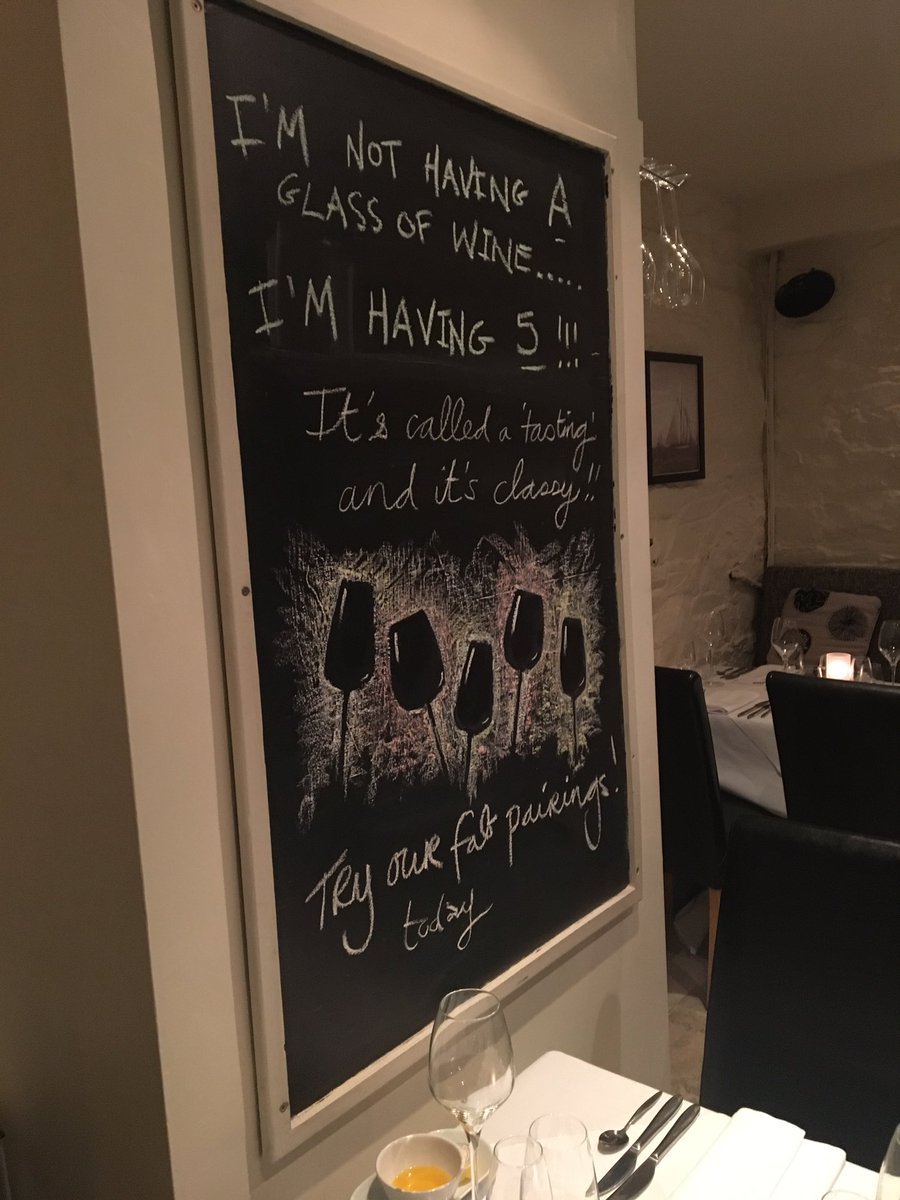 I'M NOT HAVING A
GLASS OF WINE.....
I'M HAVING 5 !!!
It's called a 'tasting'
and it's classy!!
Try our fab pairings!
today